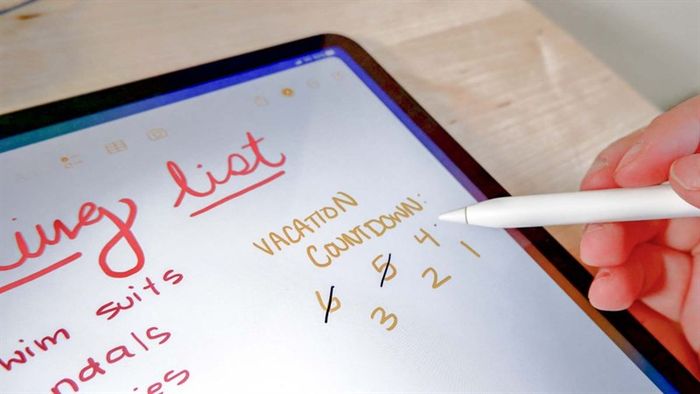 ing list
wim suits
ndals
ies
VACATION
COUNTDOWN:
6 5 4
3 2 1